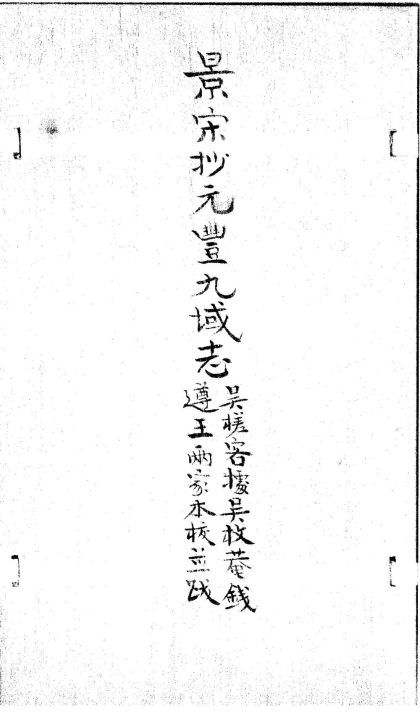 景宋抄元豐九域志
吴槎客據吴枚菴錢
遵王兩家本校並跋